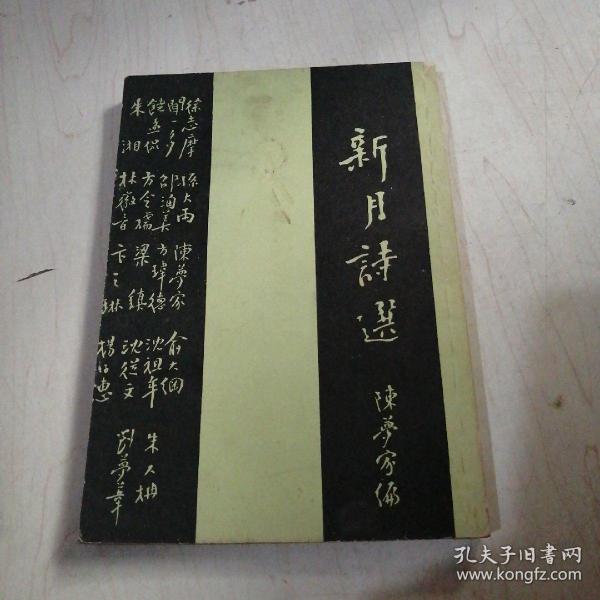 新月詩選
陳夢家編
徐志摩
聞一多
饒孟侃
朱湘
孫大雨
邵洵美
方令孺
林徽音
陳夢家
方瑋德
梁鎮
卞之琳
俞大綱
沈祖牟
沈從文
楊子惠
朱大枏
劉夢葦
孔夫子旧书网
www.kongfz.com